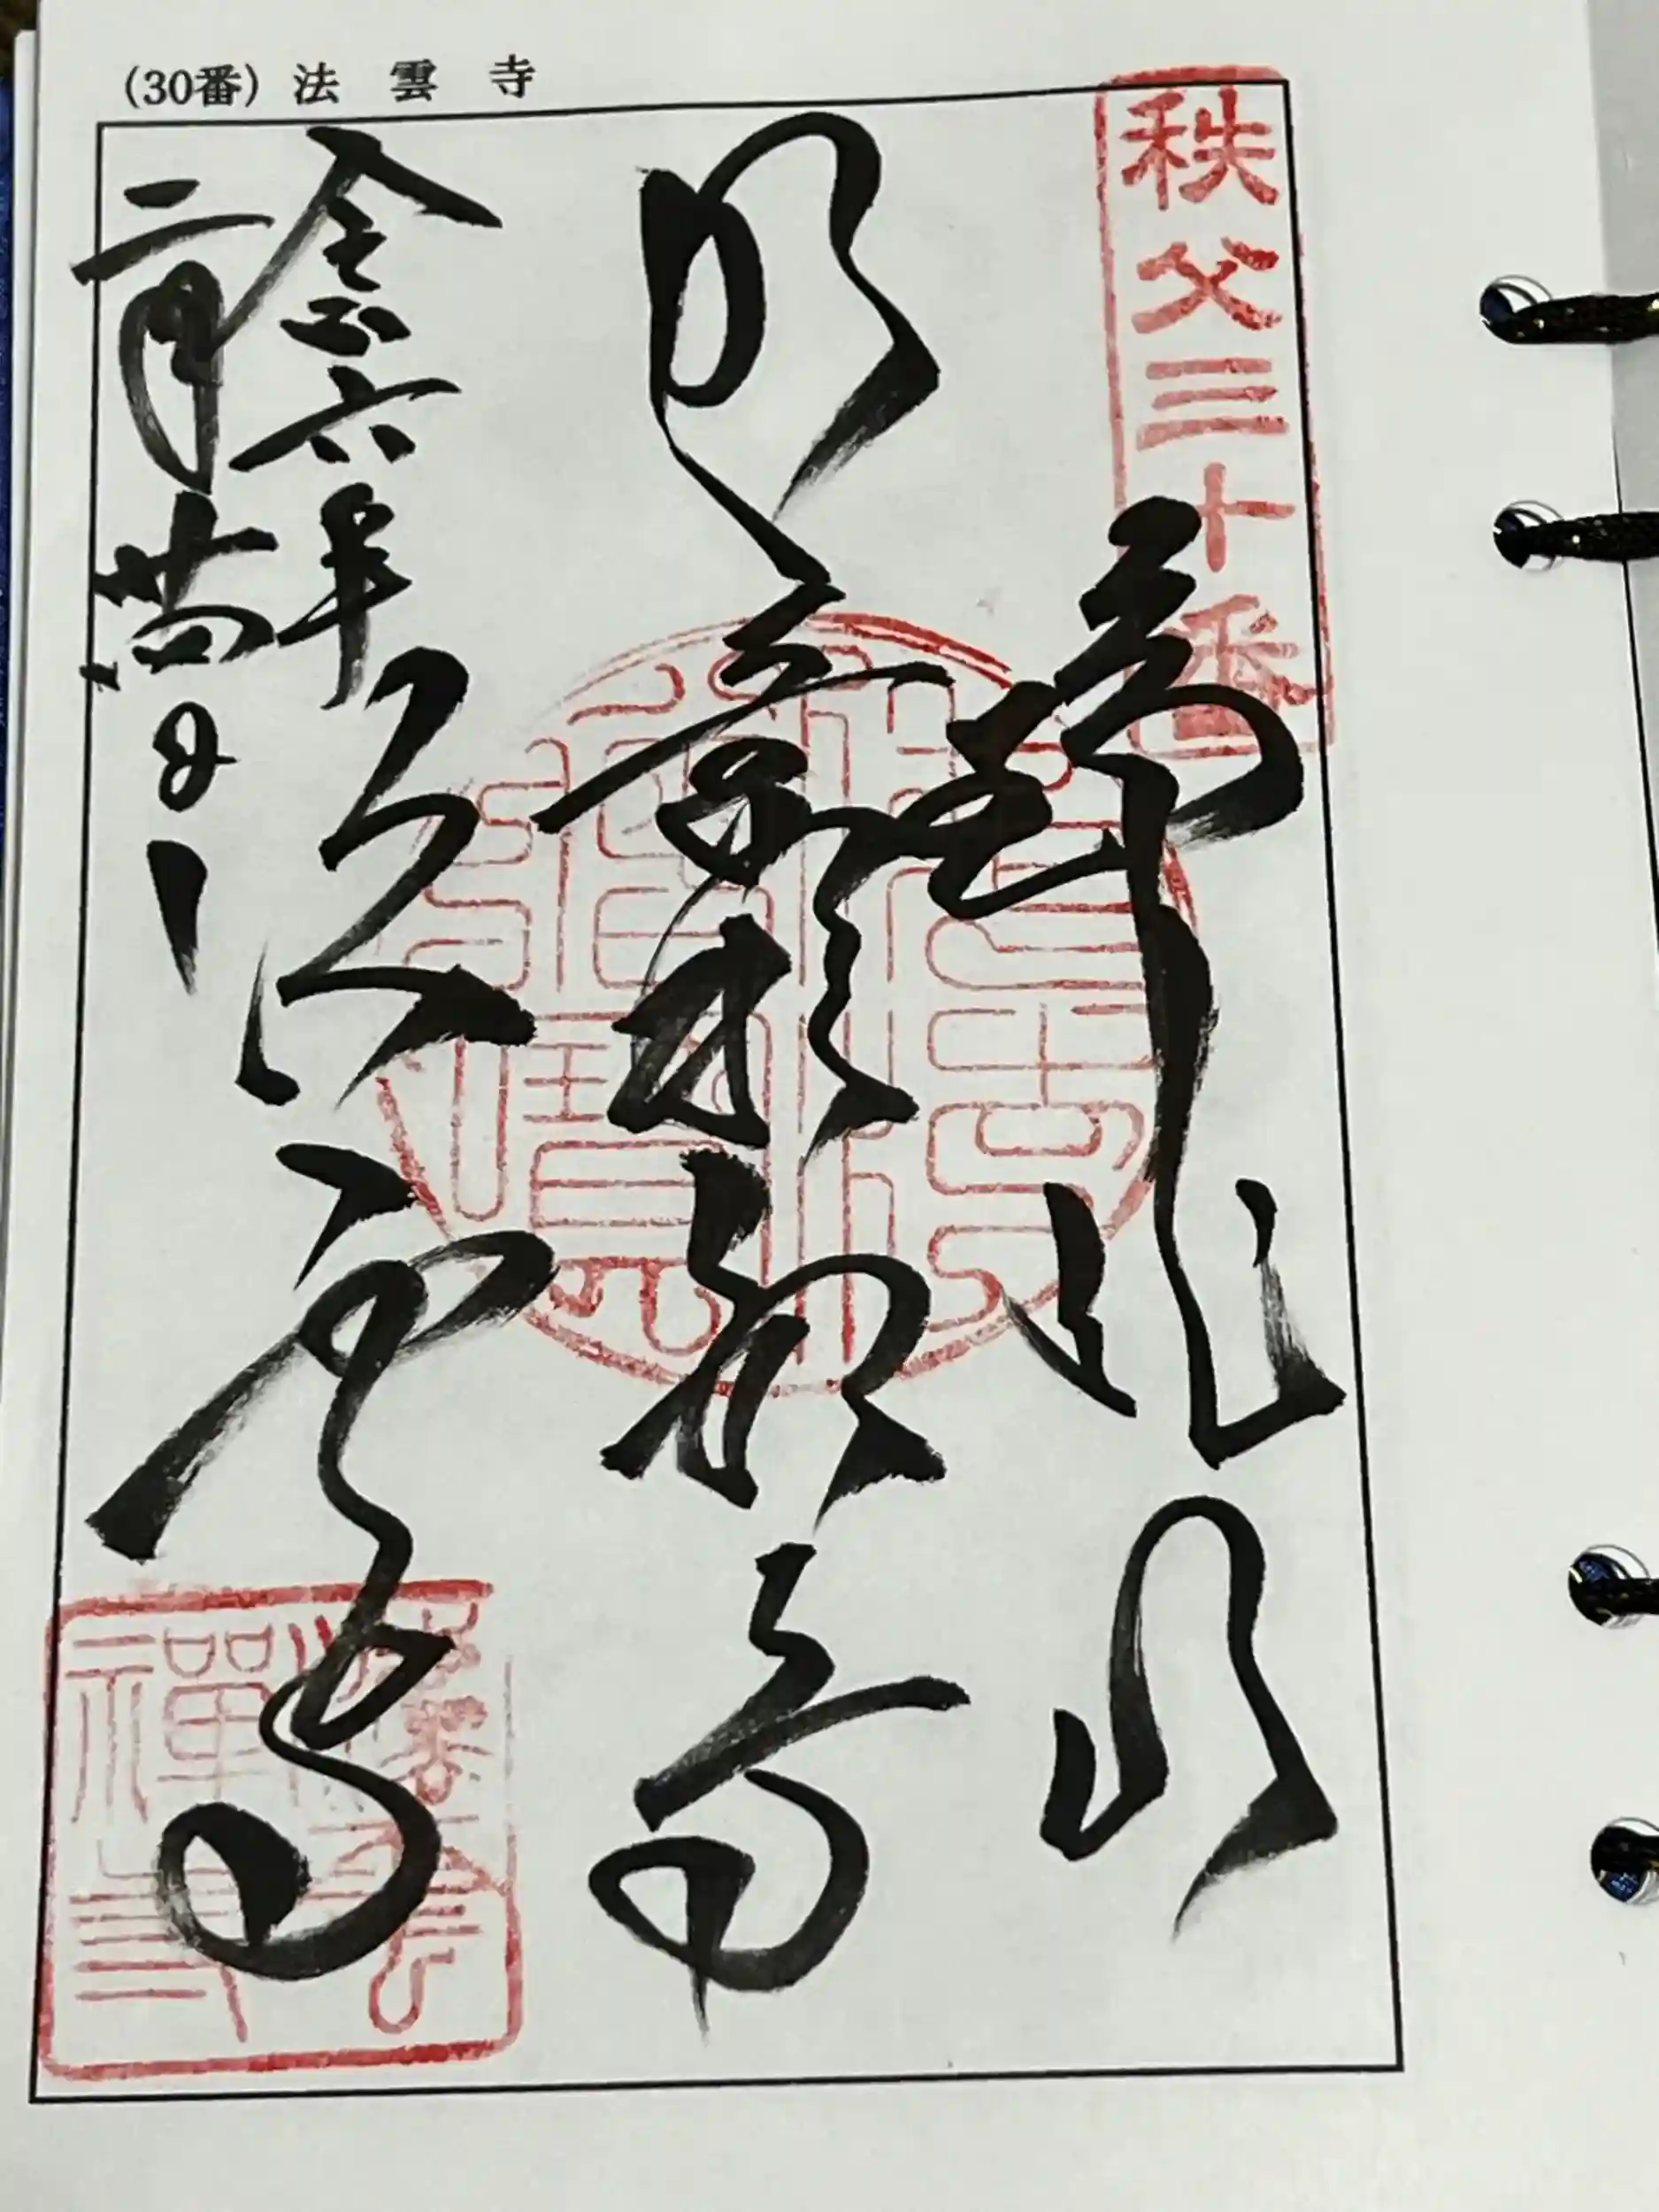 (30番) 法雲寺
秩父三十番
瑞龍山
如意輪観音
法雲寺
令和六年
二月廿四日